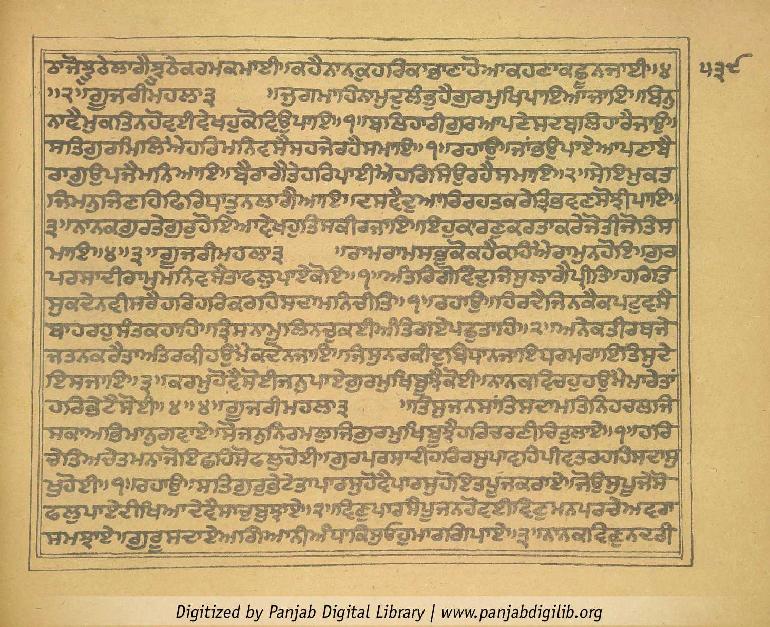 ਠਾਜੋਝੂਠੇਲਾਗੈਝੂਠੇਕਰਮਕਮਾਈ॥ਕਹੈਨਾਨਕੁਹਰਿਕਾਭਾਣਾਹੋਆਕਹਣਾਕਛੂਨਜਾਈ॥੪
੫੩੯
॥੨॥ਗੂਜਰੀਮਹਲਾ੩ ॥ਜੁਗਮਾਹਿਨਾਮੁਦੁਲੰਭੁਹੈਗੁਰਮੁਖਿਪਾਇਆਜਾਇ॥ਬਿਨੁ
ਨਾਵੈਮੁਕਤਿਨਹੋਵਈਦੇਖਹੁਕੋਵਿਉਪਾਇ॥੧॥ਬਲਿਹਾਰੀਗੁਰਆਪਣੇਸਦਬਲਿਹਾਰੈਜਾਉ॥
ਸਤਿਗੁਰਮਿਲਿਐਹਰਿਮਨਿਵਸੈਸਹਜੇਰਹੈਸਮਾਇ॥੧॥ਰਹਾਉ॥ਜਾਂਭਉਪਾਏਆਪਣਾਬੈ
ਰਾਗੁਉਪਜੈਮਨਿਆਇ॥ਬੈਰਾਗੈਤੇਹਰਿਪਾਈਐਹਰਿਸਿਉਰਹੈਸਮਾਇ॥੨॥ਸੇਇਮੁਕਤ
ਜਿਮਨੁਜਿਣਹਿਫਿਰਿਧਾਤੁਨਲਾਗੈਆਇ॥ਦਸਵੈਦੁਆਰਿਰਹਤਕਰੇਤ੍ਰਿਭਵਣਸੋਝੀਪਾਇ॥
੩॥ਨਾਨਕਗੁਰਤੇਗੁਰੁਹੋਇਆਵੇਖਹੁਤਿਸਕੀਰਜਾਇ॥ਇਹੁਕਾਰਣੁਕਰਤਾਕਰੇਜੋਤੀਜੋਤਿਸ
ਮਾਇ॥੪॥੩॥ਗੂਜਰੀਮਹਲਾ੩ ॥ਰਾਮਰਾਮਸਭੁਕੋਕਹੈਕਹਿਐਰਾਮੁਨਹੋਇ॥ਗੁਰ
ਪਰਸਾਦੀਰਾਮੁਮਨਿਵਸੈਤਾਫਲੁਪਾਵੈਕੋਇ॥੧॥ਅੰਤਰਿਗੋਵਿੰਦਜਿਸੁਲਾਗੈਪ੍ਰੀਤਿ॥ਹਰਿਤਿ
ਸੁਕਦੇਨਵੀਸਰੈਹਰਿਹਰਿਕਰਹਿਸਦਾਮਨਿਚੀਤਿ॥੧॥ਰਹਾਉ॥ਹਿਰਦੈਜਿਨਕੈਕਪਟੁਵਸੈ
ਬਾਹਰਹੁਸੰਤਕਹਾਹਿ॥ਤ੍ਰਿਸਨਾਮੂਲਿਨਚੁਕਈਅੰਤਿਗਏਪਛੁਤਾਹਿ॥੨॥ਅਨੇਕਤੀਰਥਜੇ
ਜਤਨਕਰੈਤਾਅੰਤਰਕੀਹਉਮੈਕਦੇਨਜਾਇ॥ਜਿਸੁਨਰਕੀਦੁਬਿਧਾਨਜਾਇਧਰਮਰਾਇਤਿਸੁਦੇ
ਇਸਜਾਇ॥੩॥ਕਰਮੁਹੋਵੈਸੋਈਜਨੁਪਾਏਗੁਰਮੁਖਿਬੂਝੈਕੋਈ॥ਨਾਨਕਵਿਚਹੁਹਉਮੈਮਾਰੇਤਾਂ
ਹਰਿਭੇਟੈਸੋਈ॥੪॥੪॥ਗੂਜਰੀਮਹਲਾ੩ ॥ਤਿਸੁਜਨਸਾਂਤਿਸਦਾਮਤਿਨਿਹਚਲਜਿ
ਸਕਾਅਭਿਮਾਨੁਗਵਾਏ॥ਸੋਜਨੁਨਿਰਮਲੁਜਿਗੁਰਮੁਖਿਬੂਝੈਹਰਿਚਰਣੀਚਿਤੁਲਾਏ॥੧॥ਹਰਿ
ਚੇਤਿਅਚੇਤਮਨਾਜੋਇਛਹਿਸੋਫਲੁਹੋਈ॥ਗੁਰਪਰਸਾਦੀਹਰਿਰਸੁਪਾਵਹਿਪੀਵਤਰਹਹਿਸਦਾਸੁ
ਖੁਹੋਈ॥੧॥ਰਹਾਉ॥ਸਤਿਗੁਰੁਭੇਟੇਤਾਪਾਰਸੁਹੋਵੈਪਾਰਸੁਹੋਇਤਪੂਜਕਰਾਏ॥ਜੋਉਸੁਪੂਜੇਸੋ
ਫਲੁਪਾਏਦੀਖਿਆਦੇਵੈਸਾਚੁਬੁਝਾਏ॥੨॥ਵਿਣੁਪਾਰਸੈਪੂਜਨਹੋਵਈਵਿਣੁਮਨਪਰਚੇਅਵਰਾ
ਸਮਝਾਏ॥ਗੁਰੂਸਦਾਏਅਗਿਆਨੀਅੰਧਾਕਿਸੁਓਹੁਮਾਰਗਿਪਾਏ॥੩॥ਨਾਨਕਵਿਣੁਨਦਰੀ
Digitized by Panjab Digital Library | www.panjabdigilib.org